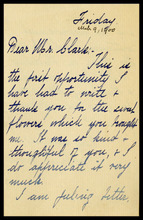 Friday
Dear Mrs. Clark -
This is
the first opportunity I
have had to write &
thank you for the
flowers which you bought
me. It was so kind &
thoughtful of you, & I
do appreciate it very
much.
I am feeling better,